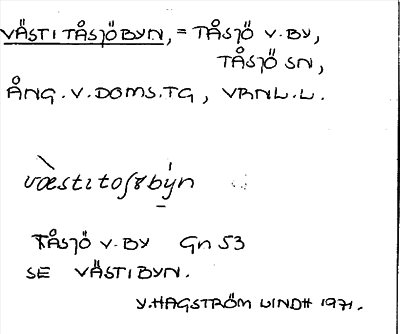 VÄSTITÅSJÖBYN, = TÅSJÖ V. BY,
TÅSJÖ SN,
ÅNG. V. DOMS. TG, VRNL. L.
væstıtoʃøbyn
TÅSJÖ V. BY Gn 53
SE VÄSTIBYN.
Y. HAGSTRÖM LINDH 1971.